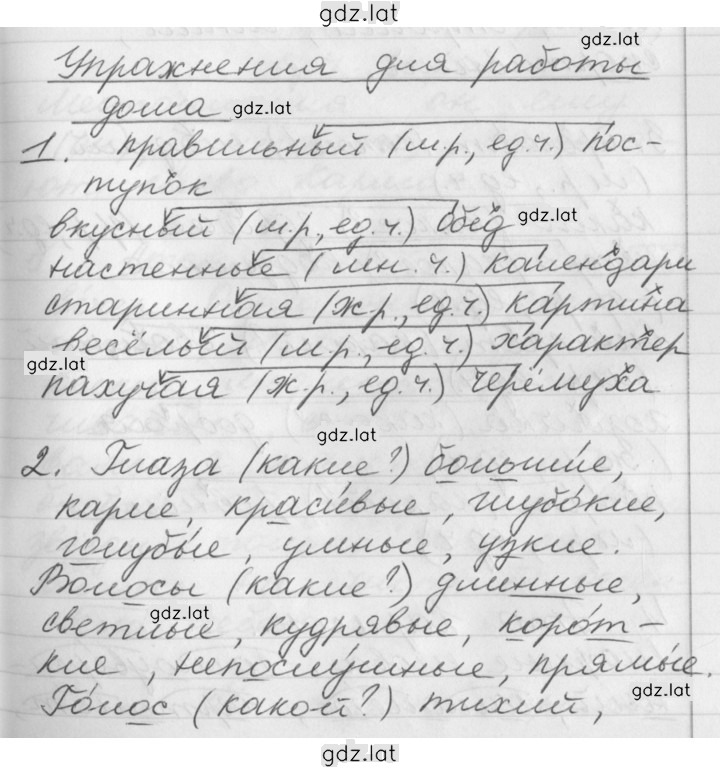 gdz.lat
gdz.lat
Упражнения для работы
дома gdz.lat
1. правильный (м.р., ед.ч.) пос-
тупок
вкусный (м.р., ед.ч.) обед gdz.lat
настенные (мн. ч.) календари
старинная (ж.р., ед.ч.) картина
весёлый (м.р., ед.ч.) характер
gdz.lat
пахучая (ж.р., ед.ч.) черёмуха
gdz.lat
2. Глаза (какие?) большие,
карие, красивые, глубокие,
голубые, умные, узкие.
Волосы (какие?) длинные,
gdz.lat
светлые, кудрявые, корот-
кие, непослушные, прямые.
gdz.lat
Голос (какой?) тихий,
gdz.lat